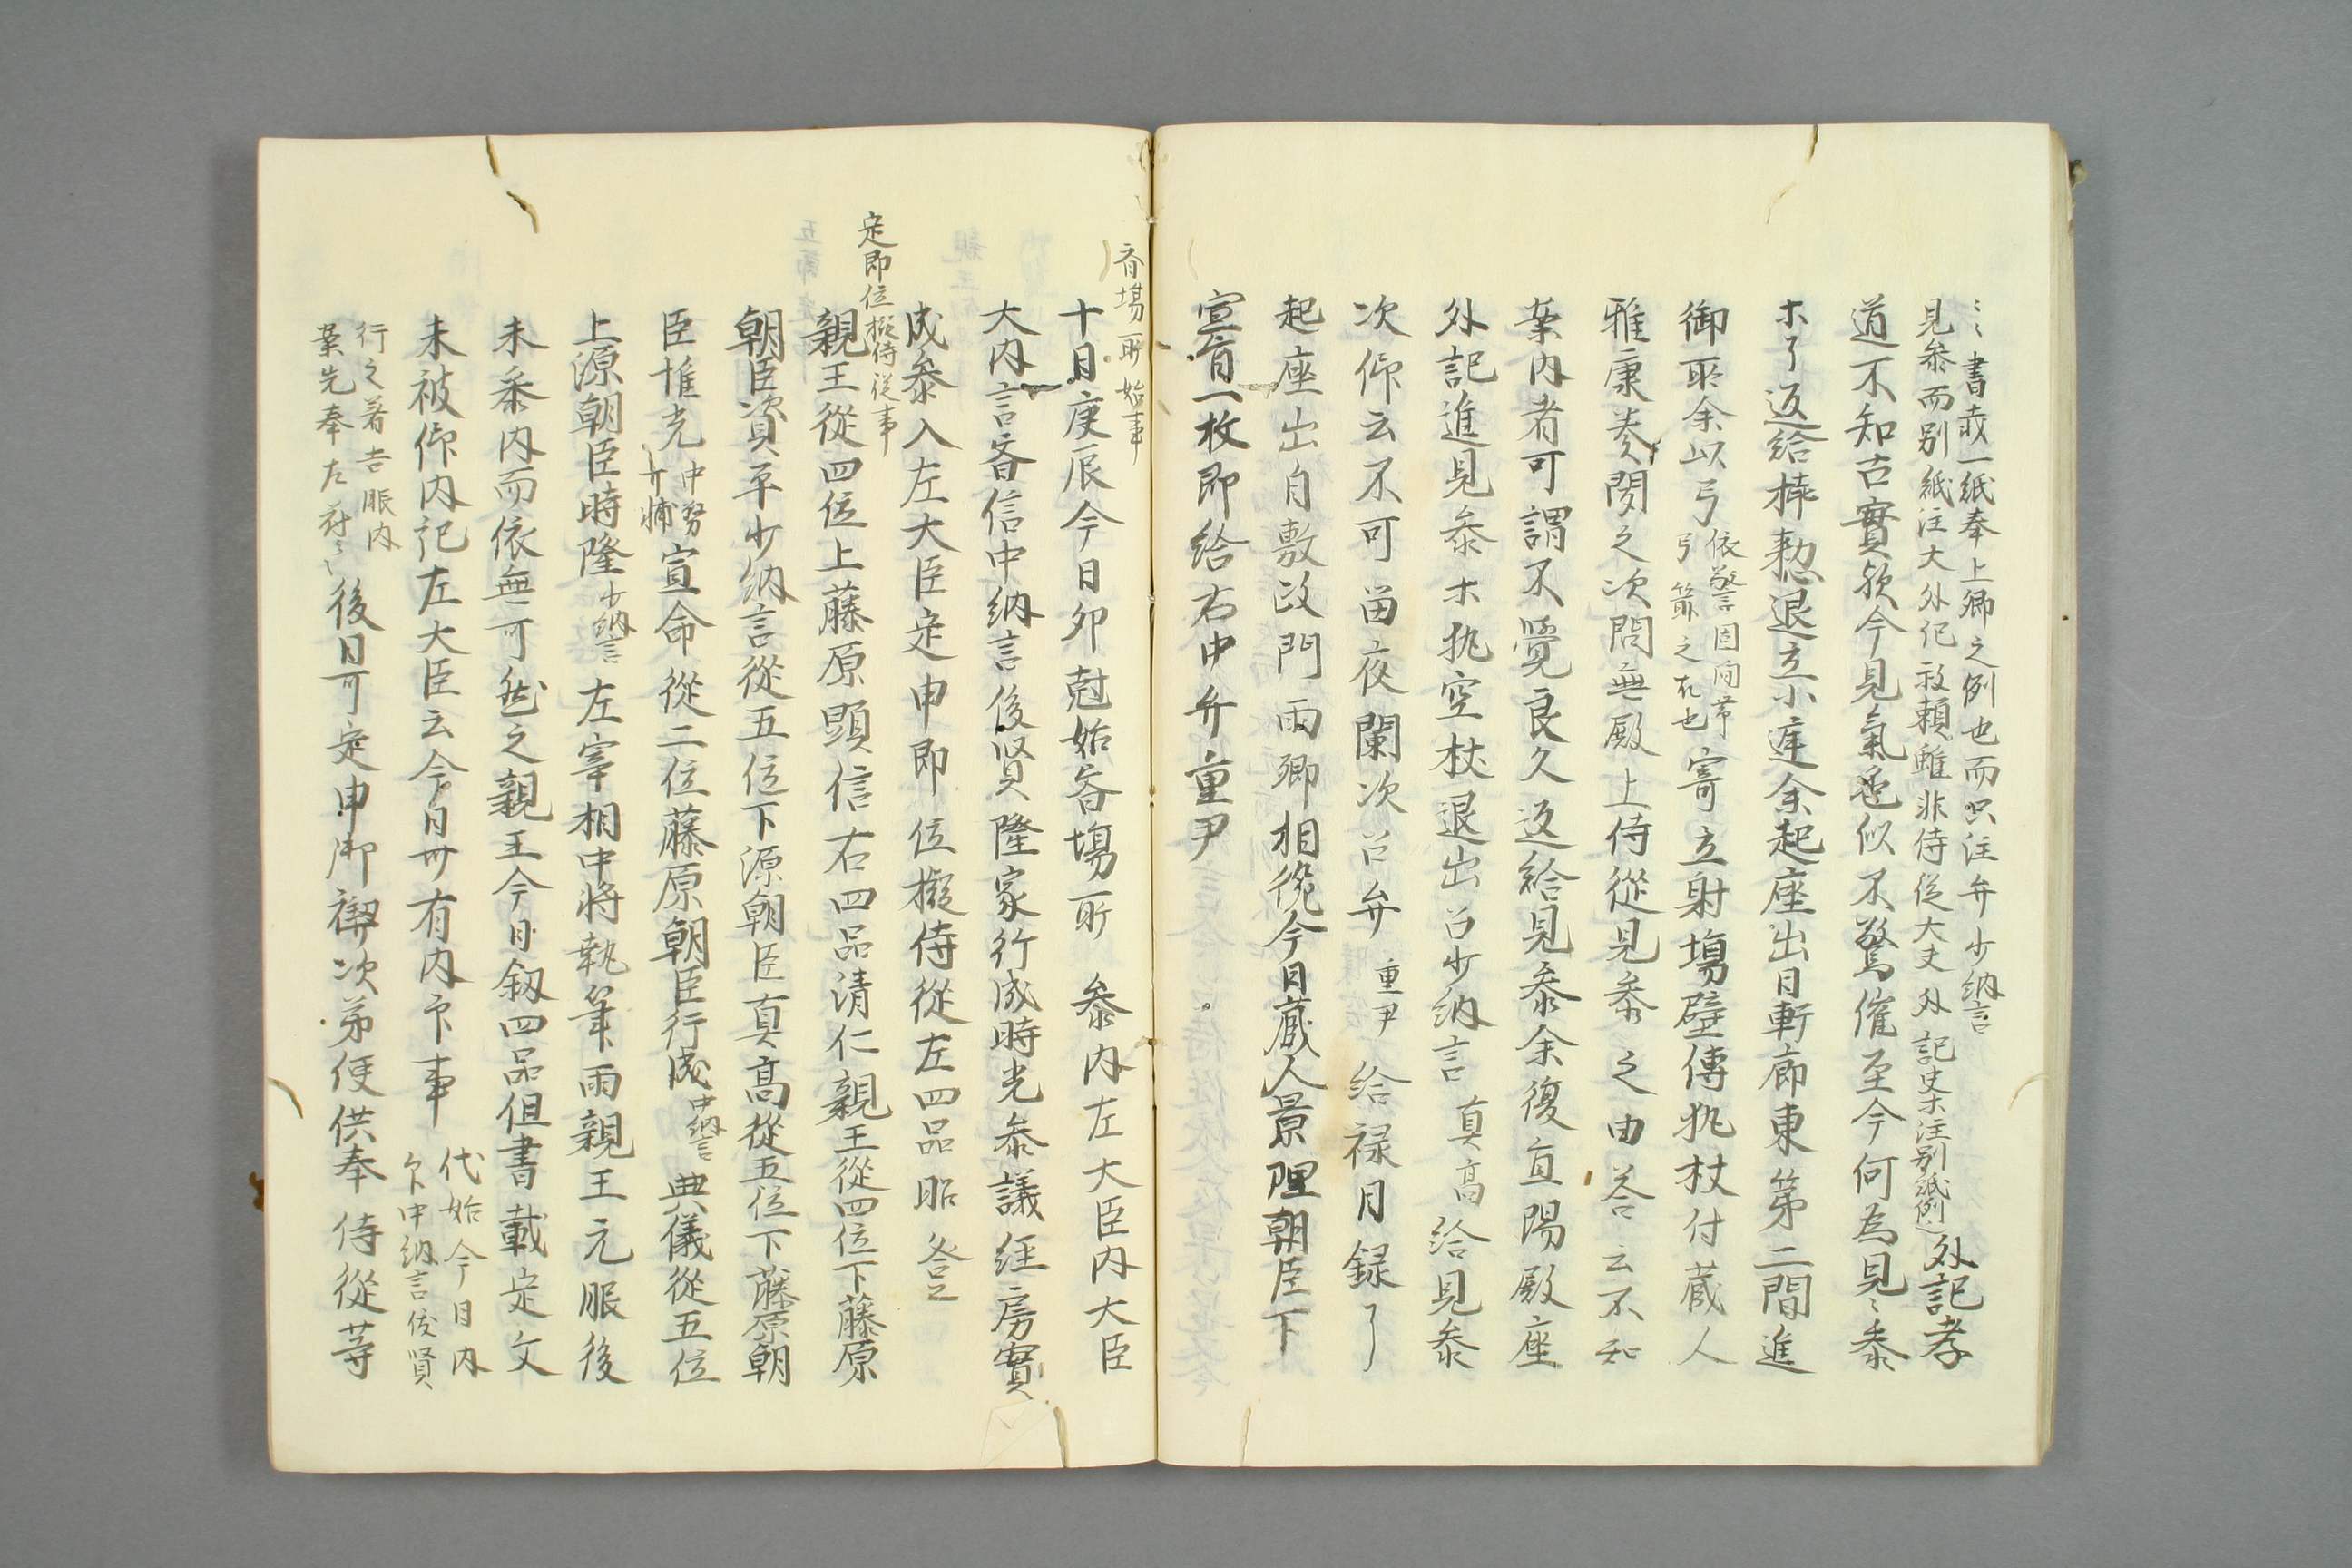 〻〻書載一紙奉上卿之例也而只注弁少納言
見参而別紙注大外記敦頼雖非侍従大夫外記史ホ注別紙例〻外記孝
道不知古實欤今見氣色似不驚催至今何為見〻参
ホ了返給捧勅退立小庭余起座出日軒廊東第二間進
御所余以弓
依警固間帯
弓箭之故也
寄立射場壁傳執杖付蔵人
雅康奏聞之次問無殿上侍従見参之由答云不知
案内者可謂不覺良久返給見参余復宜陽殿座
外記進見参ホ執空杖退出召少納言真高給見参
次仰云不可留夜闌次召弁重尹給禄目録了
起座出自敷政門両卿相従今日蔵人景理朝臣下
宣旨一枚即給右中弁重尹
呑場所始事
十月庚辰今日卯尅始呑場所 参内左大臣内大臣
大内言斉信中納言俊賢隆家行成時光参議経房實
成参入左大臣定申即位擬侍従左四品昭登
定即位擬侍従事
親王従四位上藤原頭信右四品清仁親王従四位下藤原
朝臣資平少納言従五位下源朝臣真高従五位下藤原朝
臣惟光
中務
少輔
宣命従二位藤原朝臣行成中納言典儀従五位
上源朝臣時隆少納言左宰相中将執筆両親王元服後
未参内而依無可然之親王今日釼四品但書載定文
未被仰内記左大臣云今日卅有内印事
代始今日内
印中納言俊賢
行之著吉服内
案先奉左府〻
後日可定申御禊次第使供奉侍従等